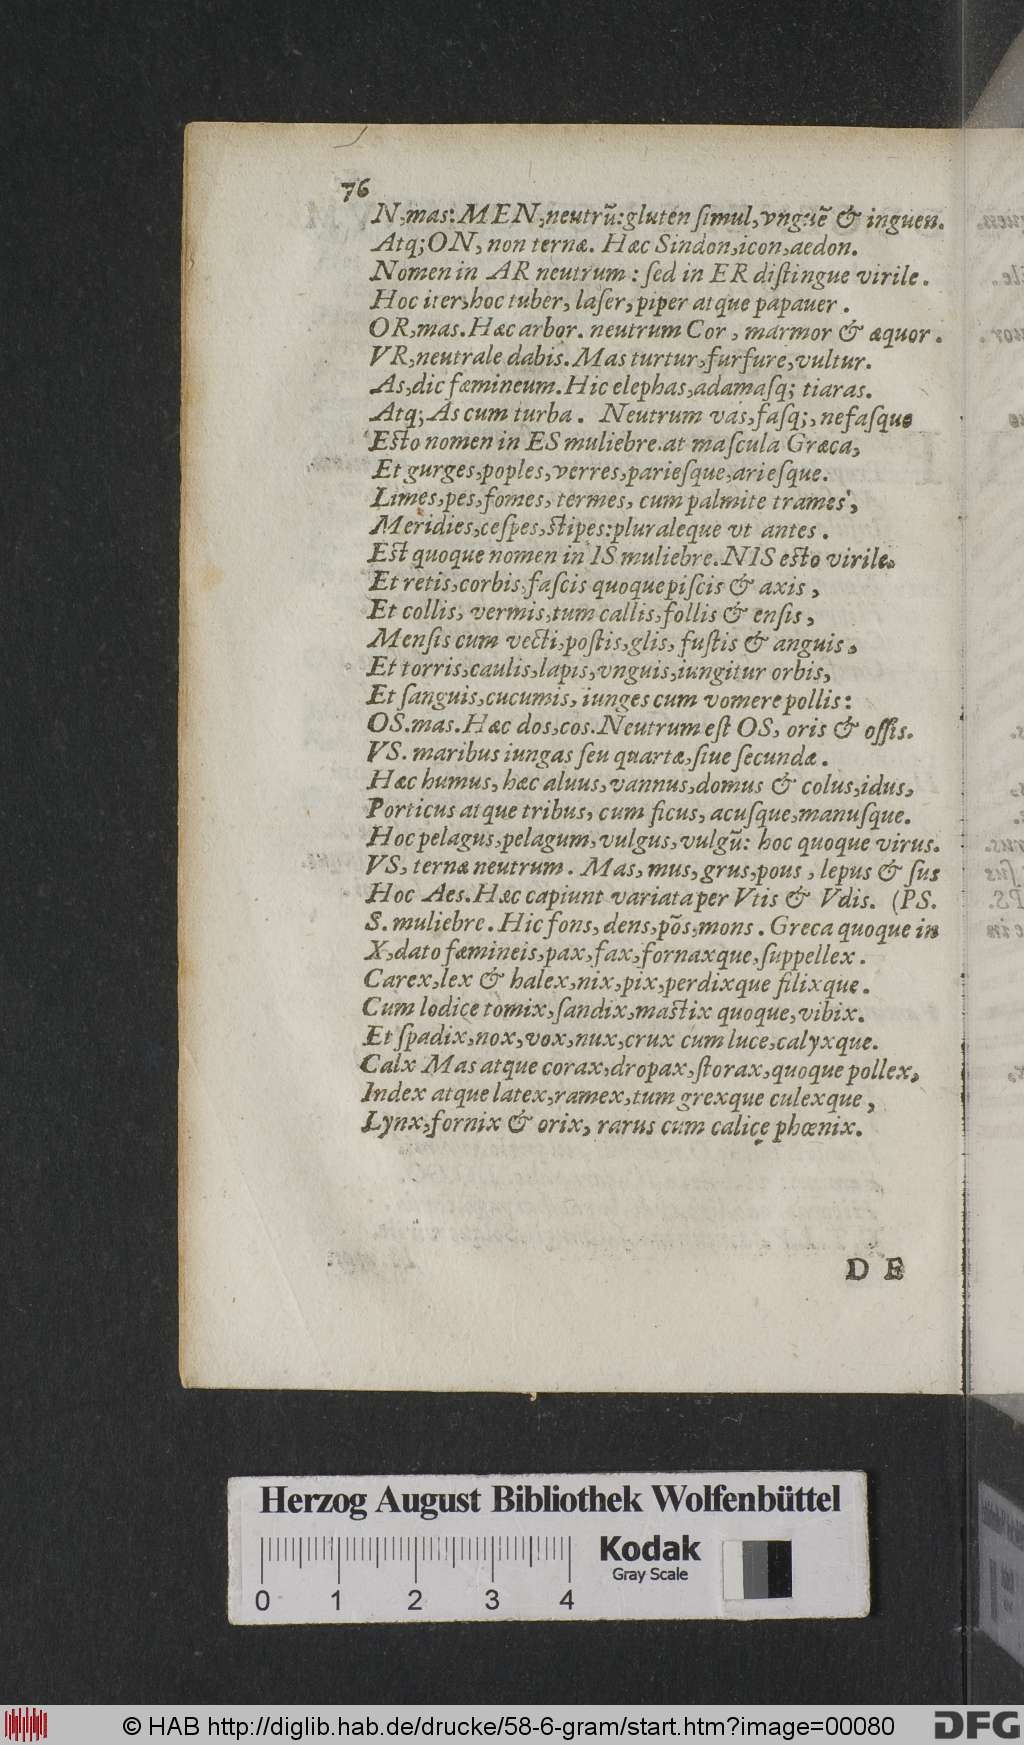 76
N,mas: MEN,neutrũ:gluten ſimul,vnguẽ & inguen.
Atq; ON, non ternæ. Hæc Sindon,icon,aedon.
Nomen in AR neutrum : ſed in ER diſtingue virile.
Hoc iter,hoc tuber, laſer, piper atque papauer .
OR,mas. Hæc arbor. neutrum Cor , marmor & æquor .
VR,neutrale dabis. Mas turtur,furfure,vultur.
As,dic fœmineum. Hic elephas,adamaſq; tiaras.
Atq; As cum turba . Neutrum vas,faſq;, nefaſque
Eſto nomen in ES muliebre.at maſcula Græca,
Et gurges,poples,verres,parieſque,arieſque.
Limes,pes,fomes, termes, cum palmite trames,
Meridies,ceſpes,ſtipes:pluraleque vt antes .
Eſt quoque nomen in IS muliebre. NIS eſto virile.
Et retis,corbis,faſcis quoque piſcis & axis ,
Et collis, vermis,tum callis,follis & enſis,
Menſis cum vecti,poſtis,glis, fuſtis & anguis ,
Et torris,caulis,lapis,vnguis,iungitur orbis,
Et ſanguis,cucumis, iunges cum vomere pollis:
OS.mas. Hæc dos,cos. Neutrum eſt OS, oris & oſſis.
VS. maribus iungas ſeu quartæ,ſiue ſecundæ .
Hæc humus, hæc aluus,vannus,domus & colus,idus,
Porticus atque tribus, cum ficus, acuſque,manuſque.
Hoc pelagus,pelagum,vulgus,vulgũ: hoc quoque virus.
VS, ternæ neutrum . Mas, mus, grus,pous , lepus & ſus
Hoc Aes. Hæc capiunt variata per Vtis & Vdis. (PS.
S. muliebre. Hic fons, dens,põs,mons . Greca quoque in
X,dato fœmineis,pax,fax,fornaxque,ſuppellex .
Carex,lex & halex,nix,pix,perdixque filixque.
Cum lodice tomix,ſandix,maſtix quoque,vibix.
Et ſpadix,nox,vox,nux,crux cum luce,calyxque.
Calx Mas atque corax,dropax,ſtorax,quoque pollex,
Index atque latex,ramex,tum grexque culexque ,
Lynx,fornix & orix, rarus cum calice phœnix.
D E
Herzog August Bibliothek Wolfenbüttel
0 1 2 3 4
Kodak
Gray Scale
© HAB http://diglib.hab.de/drucke/58-6-gram/start.htm?image=00080
DFG